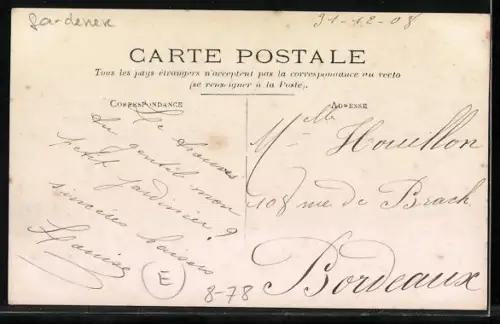 Gardener
31-12-08
CARTE POSTALE
Tous les pays étrangers n'acceptent pas la correspondance au recto
(se renseigner à la Poste).
CORRESPONDANCE
ADRESSE
Le trouves
tu gentil mon
petit jardinier?
sincères baisers
Louise
Mlle Houillon
108 rue de Brach
Bordeaux
E
8-78